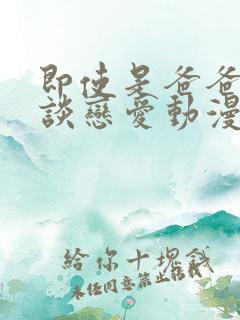 即使是爸爸
談戀愛動漫
給你十塊錢
未经同意禁止转载